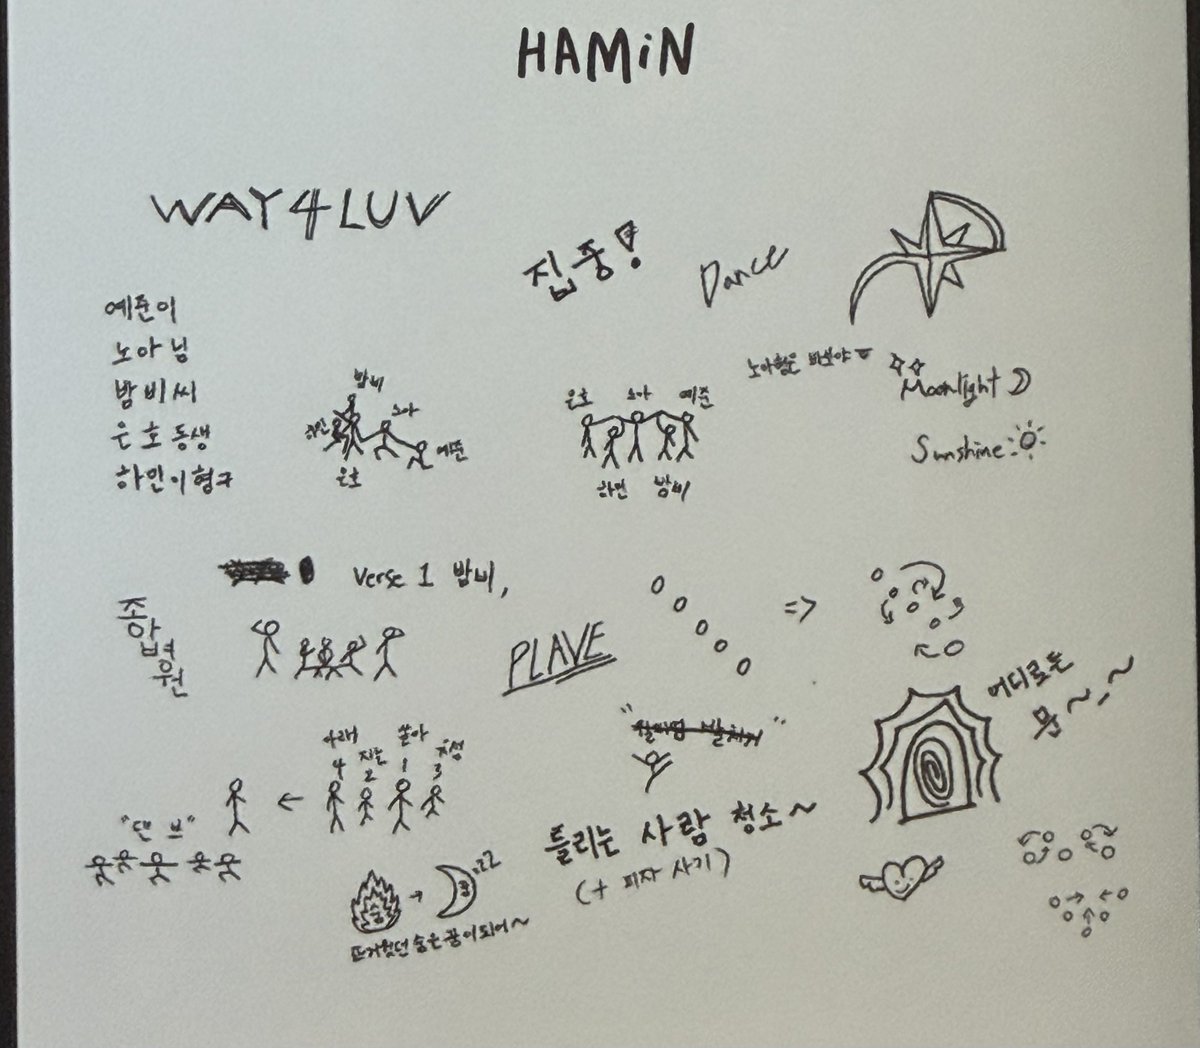 HAMiN
WAY 4 LUV
집중!
Dance
예준이
노아님
밤비씨
은호동생
하민이형구
밤비
하민
노아
예준
은호
은호
노아
예준
하민
밤비
노아형은 바보야
Moonlight
Sunshine
Verse 1 밤비,
종합병원
PLAVE
=>
어디로든 문~-~
아래
4
지는
2
쏟아
1
3
←
"댄브"
틀리는 사람 청소~
(+ 피자 사기)
숨
zzZ
뜨거웠던 숨은 꿈이 되어~